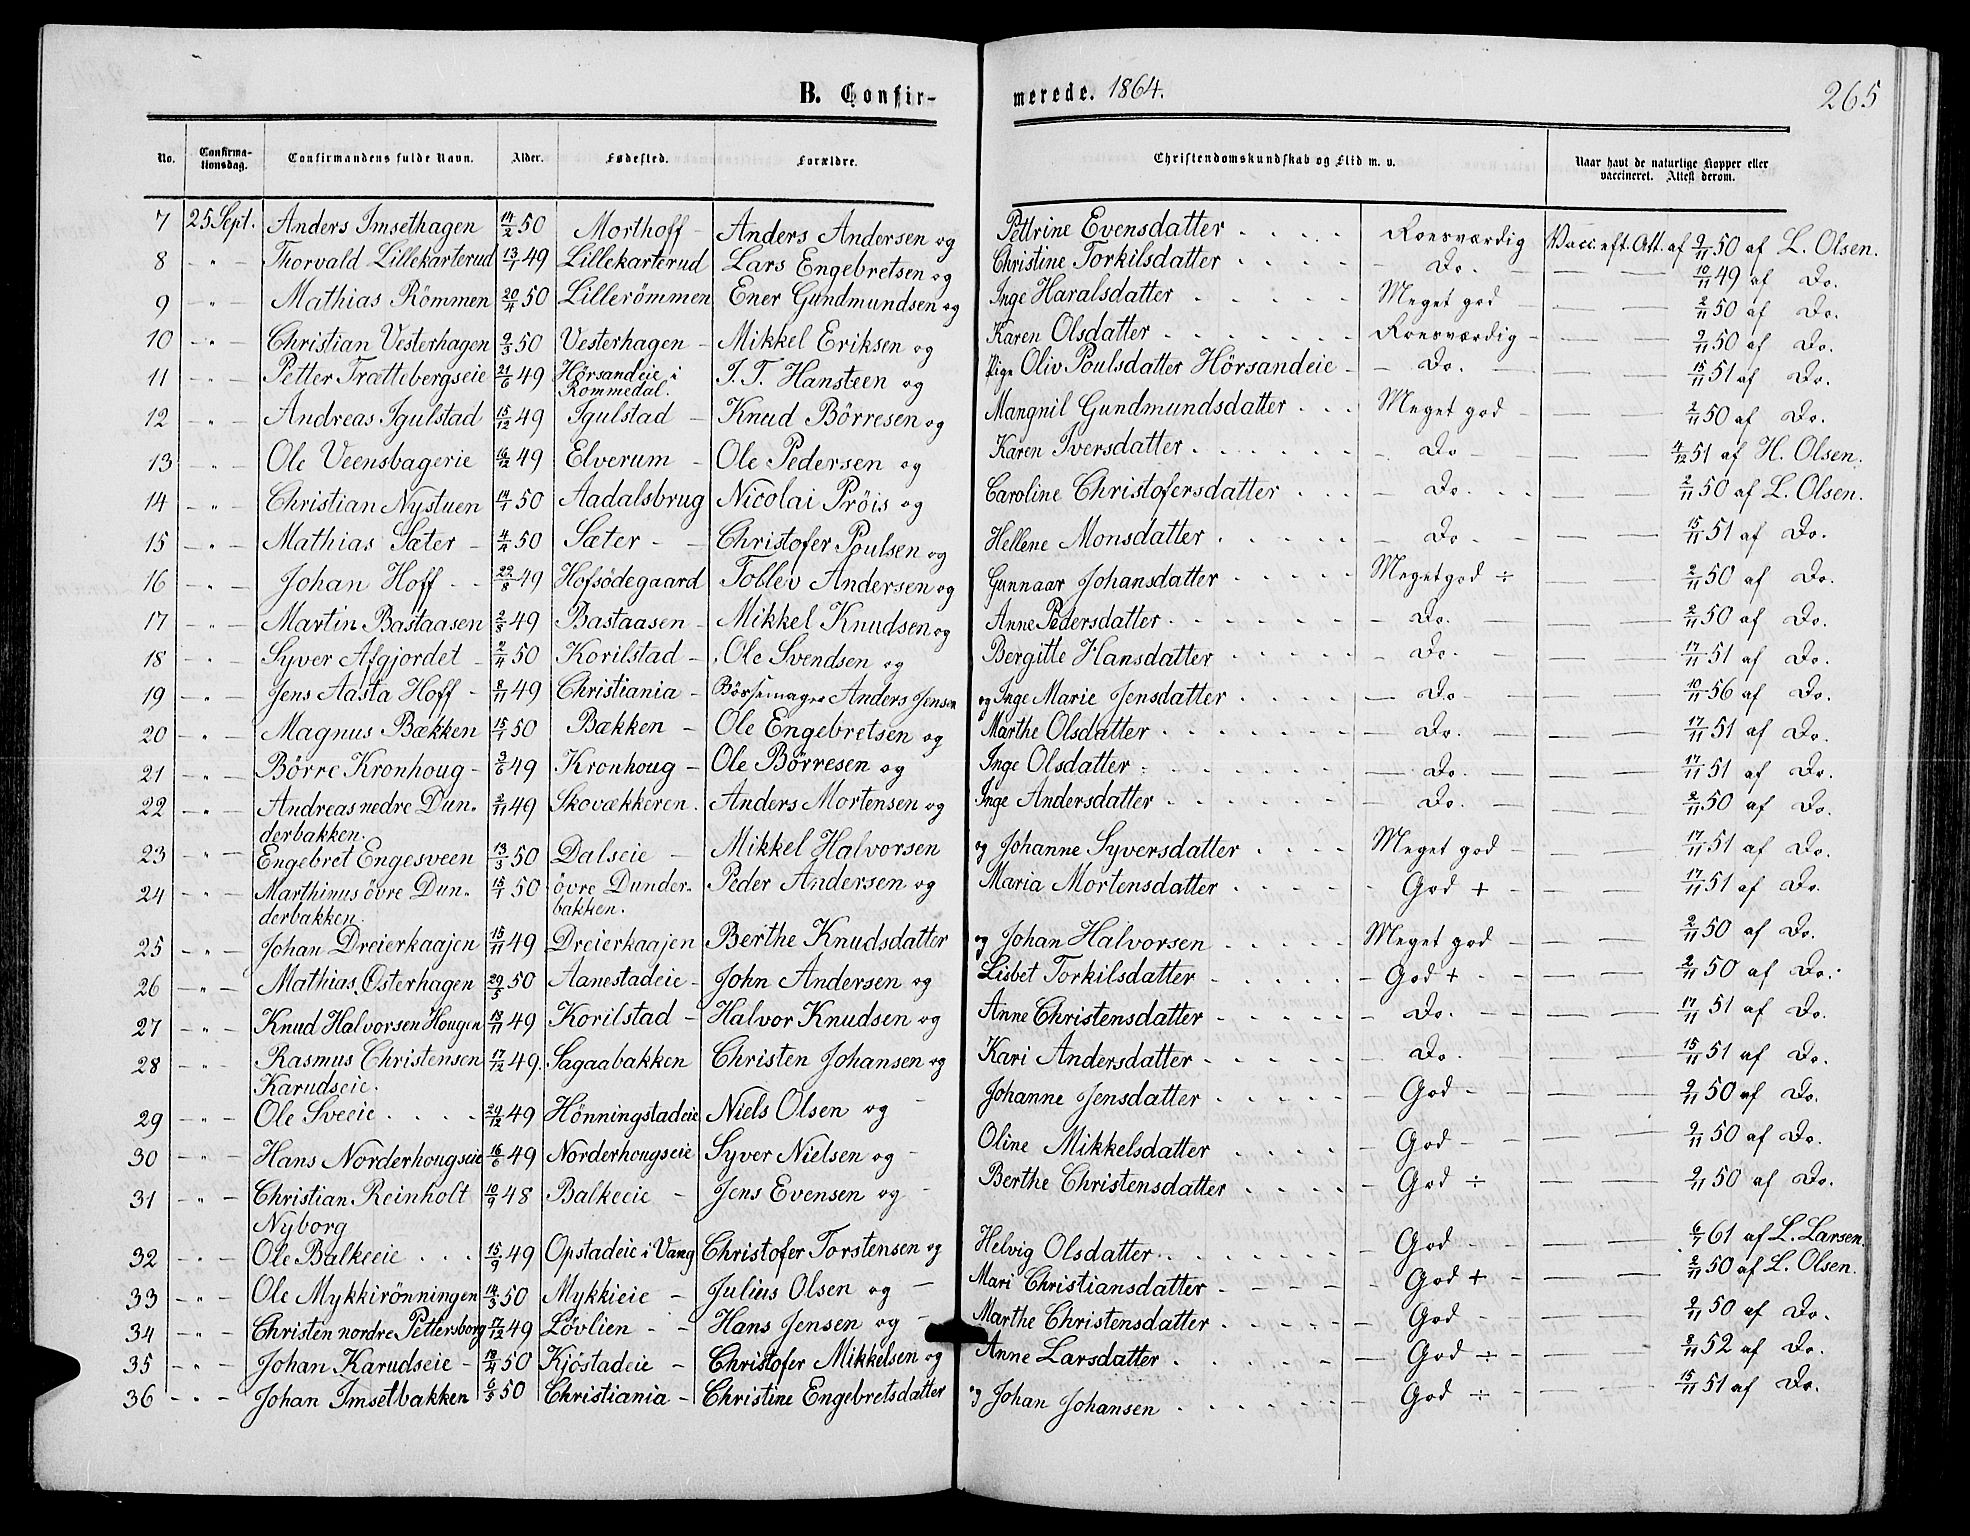 B. Confirmerede. 1864. 265
No. Confirmationsdag. Confirmandens fulde Navn. Alder. Fødested. Forældre. Christendomskundskab og Flid m. v. Naar havt de naturlige Kopper eller vaccineret. Attest derom.
7 25 Sept. Anders Imsethagen 14/2 50 Morthoff - Anders Andersen og Pettrine Evensdatter Roesværdig Vacc. eft. Att. af 2/11 50 af L. Olsen.
8 - " - Thorvald Lillekarterud 13/1 49 Lillekarterud Lars Engebretsen og Christine Torkilsdatter - Do. - 10/11 49 af Do.
9 - " - Mathias Römmen 20/4 50 Lillerömmen Ener Gundmundsen og Inge Haralsdatter Meget god - 2/11 50 af Do.
10 - " - Christian Vesterhagen 9/3 50 Vesterhagen - Mikkel Eriksen og Karen Olsdatter Roesværdig - 2/11 50 af Do.
11 - " - Petter Trættebergseie 21/6 49 Hörsandeie i Rommedal. I. T. Hansteen og Pige Oliv Poulsdatter Hörsandeie - Do. - 15/11 51 af Do.
12 - " - Andreas Igulstad 15/12 49 Igulstad - Knud Börresen og Mangnil Gundmundsdatter Meget god - 2/11 50 af Do.
13 - " - Ole Veensbagerie 16/12 49 Elverum - Ole Pedersen og Karen Iversdatter - Do - 4/12 51 af H. Olsen.
14 - " - Christian Nystuen 14/1 50 Aadalsbrug Nicolai Pröis og Caroline Christofersdatter - Do. 2/11 50 af L. Olsen.
15 - " - Mathias Sæter - 4/4 50 Sæter - - Christofer Poulsen og Hellene Monsdatter - Do - 15/11 51 af Do.
16 - " - Johan Hoff - - 29/8 49 Hofsödegaard Tollev Andersen og Gunnaar Johansdatter Meget god ÷ 2/11 50 af Do.
17 - " - Martin Bastaasen 2/8 49 Bastaasen - Mikkel Knudsen og Anne Pedersdatter - Do. 2/11 50 af Do.
18 - " - Syver Afgjordet - 2/4 50 Korilstad - Ole Svendsen og Bergitte Hansdatter - Do. - 17/11 51 af Do.
19 - " - Jens Aasta Hoff - 8/11 49 Christiania - Börsemager Anders Jensen og Inge Marie Jensdatter - Do - 10/11 56 af Do.
20 - " - Magnus Bækken 15/1 50 Bækken - Ole Engebretsen og Marthe Olsdatter - Do. - 17/11 51 af Do.
21 - " - Börre Kronhoug - 9/6 49 Kronhoug - Ole Börresen og Inge Olsdatter - Do. - 17/11 51 af Do.
22 - " - Andreas nedre Dunderbakken. 2/11 49 Skovækkeren. Anders Mortensen og Inge Andersdatter - Do. - 2/11 50 af Do.
23 - " - Engebret Engesveen 13/3 50 Dalseie - Mikkel Halvorsen og Johanne Syversdatter Meget god - 17/11 51 af Do.
24 - " - Marthinus övre Dunderbakken. 15/1 50 övre Dunderbakken. Peder Andersen og Maria Mortensdatter - God + - 17/11 51 af Do.
25 - " - Johan Dreierkaajen 15/11 49 Dreierkaajen Berthe Knudsdatter og Johan Halvorsen Meget god - 2/11 50 af Do.
26 - " - Mathias Österhagen 29/5 50 Aanestadeie - John Andersen og Lisbet Torkilsdatter - God + - 2/11 50 af Do.
27 - " - Knud Halvorsen Hougen 18/11 49 Korilstad - Halvor Knudsen og Anne Christensdatter - Do. - 17/11 51 af Do.
28 - " - Rasmus Christensen Karudseie. 17/12 49. Sagaabakken Christen Johansen og Kari Andersdatter - Do. - 15/11 51 af Do.
29 - " - Ole Sveeie 29/12 49 Hönningstadeie Niels Olsen og - Johanne Jensdatter - God - 2/11 50 af Do.
30 - " - Hans Norderhougseie 16/6 49 Norderhougseie Syver Nielsen og - Oline Mikkelsdatter - God - 2/11 50 af Do.
31 - " - Christian Reinholt Nyborg 10/9 48 Balkeeie - Jens Evensen og - Berthe Christensdatter - God ÷ 2/11 50 af Do.
32 - " - Ole Balkeeie 15/9 49 Opstadeie i Vang Christofer Torstensen og Helvig Olsdatter - God - 6/7 61 af L. Larsen.
33 - " - Ole Mykkirönningen 14/3 50 Mykkieie - Julius Olsen og - Mari Christiansdatter - God + - 2/11 50 af L. Olsen.
34 - " - Christen nordre Pettersborg 17/12 49 Lövlien - - Hans Jensen og - Marthe Christensdatter - God - 2/11 50 af Do.
35 - " - Johan Karudseie - 18/4 50 Kjöstadeie - Christofer Mikkelsen og Anne Larsdatter - God ÷ - 8/11 52 af Do.
36 - " - Johan Imsetbakken 6/5 50 Christiania - Christine Engebretsdatter og Johan Johansen - God ÷ - 15/11 51 af Do.